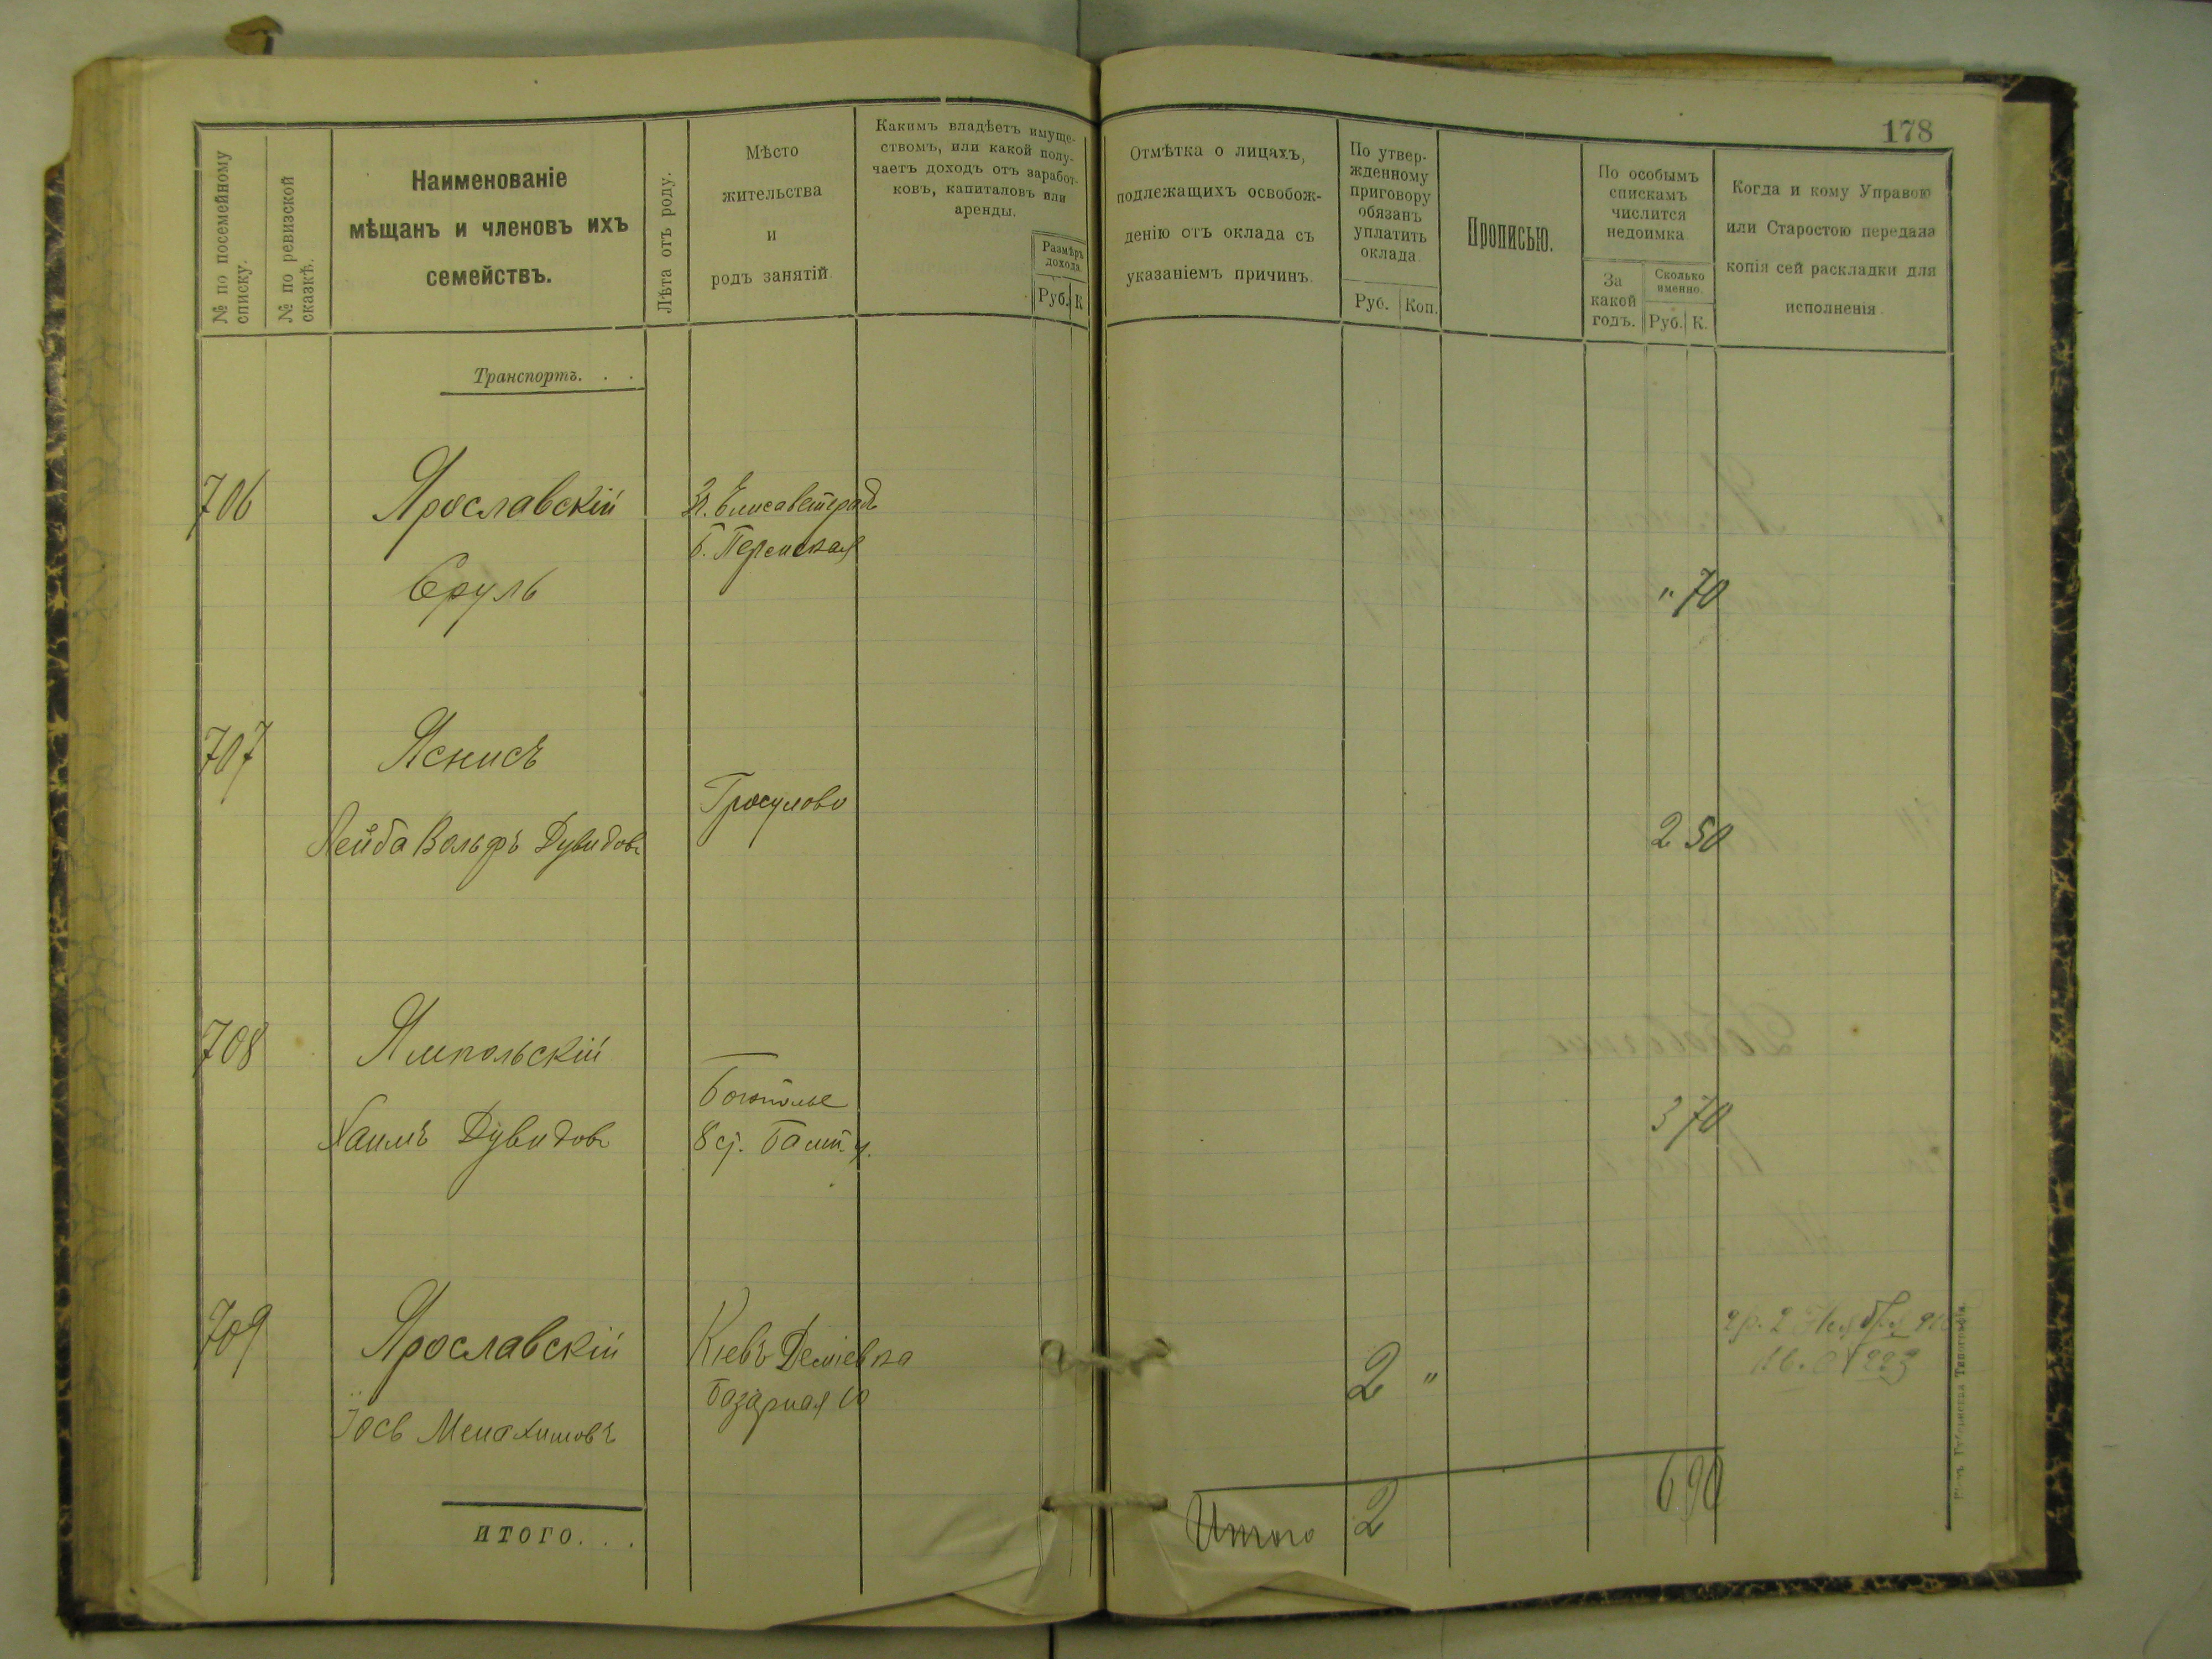 178
№ по посемейному
списку.
№ по ревизской
сказкѣ.
Наименованіе
мѣщанъ и членовъ ихъ
семействъ.
Лѣта отъ роду.
Мѣсто
жительства
и
родъ занятій.
Какимъ владѣетъ имуще-
ствомъ, или какой полу-
чаетъ доходъ отъ заработ-
ковъ, капиталовъ или
аренды.
Размѣръ
дохода.
Руб. К
Отмѣтка о лицахъ,
подлежащихъ освобож-
денію отъ оклада съ
указаніемъ причинъ.
По утвер-
жденному
приговору
обязанъ
уплатить
оклада
Руб. Коп.
Прописью.
По особымъ
спискамъ
числится
недоимка
За
какой
годъ.
Сколько
именно.
Руб. К.
Когда и кому Управою
или Старостою передана
копія сей раскладки для
исполненія.
Транспортъ. . .
706
Ярославскій
Сруль
Елисаветградъ
" 70
707
Яснисъ
Лейба Вольфъ Дувидовъ
Гросулово
2 50
708
Ямпольскій
Хаимъ Дувидовъ
3 70
709
Ярославскій
Іось Менахимовъ
Кіевъ Деміевка
Базарная 10
2 "
ИТОГО. . .
Итого 2 6 90